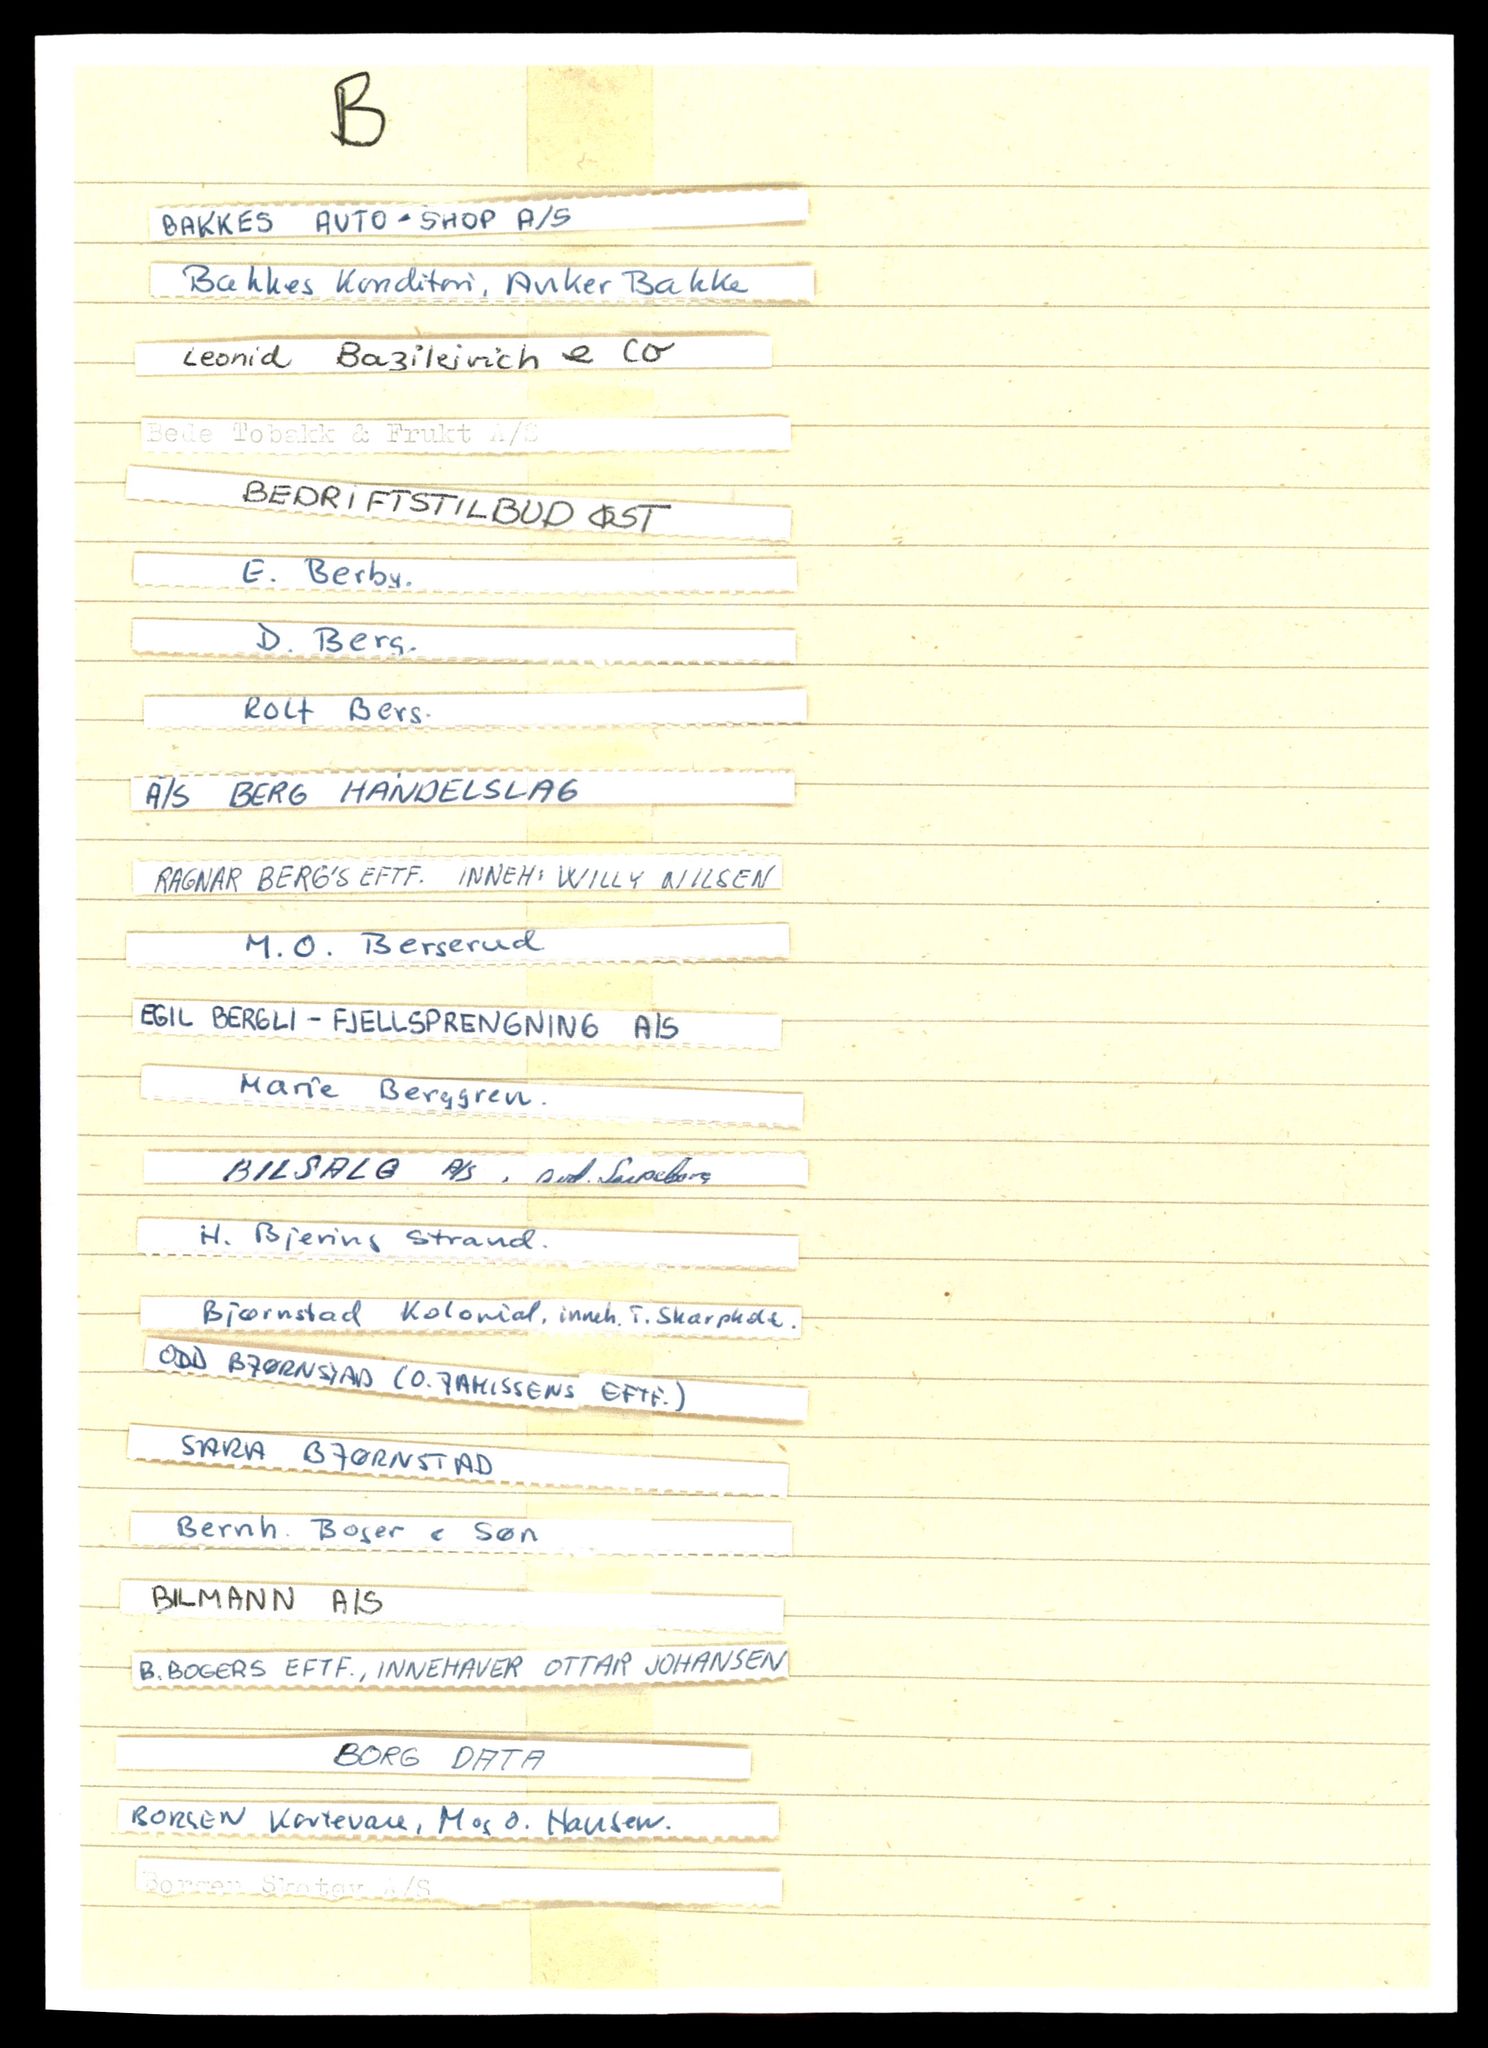 B
BAKKES AUTO-SHOP A/S
Bakkes Konditori, Anker Bakke
Leonid Bazilejvich & Co
Bede Tobakk & Frukt A/S
BEDRIFTSTILBUD ØST
E. Berby.
D. Berg.
Rolf Berg.
A/S BERG HANDELSLAG
RAGNAR BERG'S EFTF. INNEH: WILLY NILSEN
M.O. Bergerud
EGIL BERGLI - FJELLSPRENGNING A/S
Marie Berggren.
BILSALG A/S, avd. Sarpsborg
H. Bjering Strand.
Bjørnstad Kolonial, inneh. T. Skarpholt.
ODD BJØRNSTAD (O. JAHISSENS EFTF.)
SARA BJØRNSTAD
Bernh. Boger & Søn
BILMANN A/S
B. BOGERS EFTF., INNEHAVER OTTAR JOHANSEN
BORG DATA
BORGEN Kortevare, M og O. Hansen.
Borgen Skotøy A/S